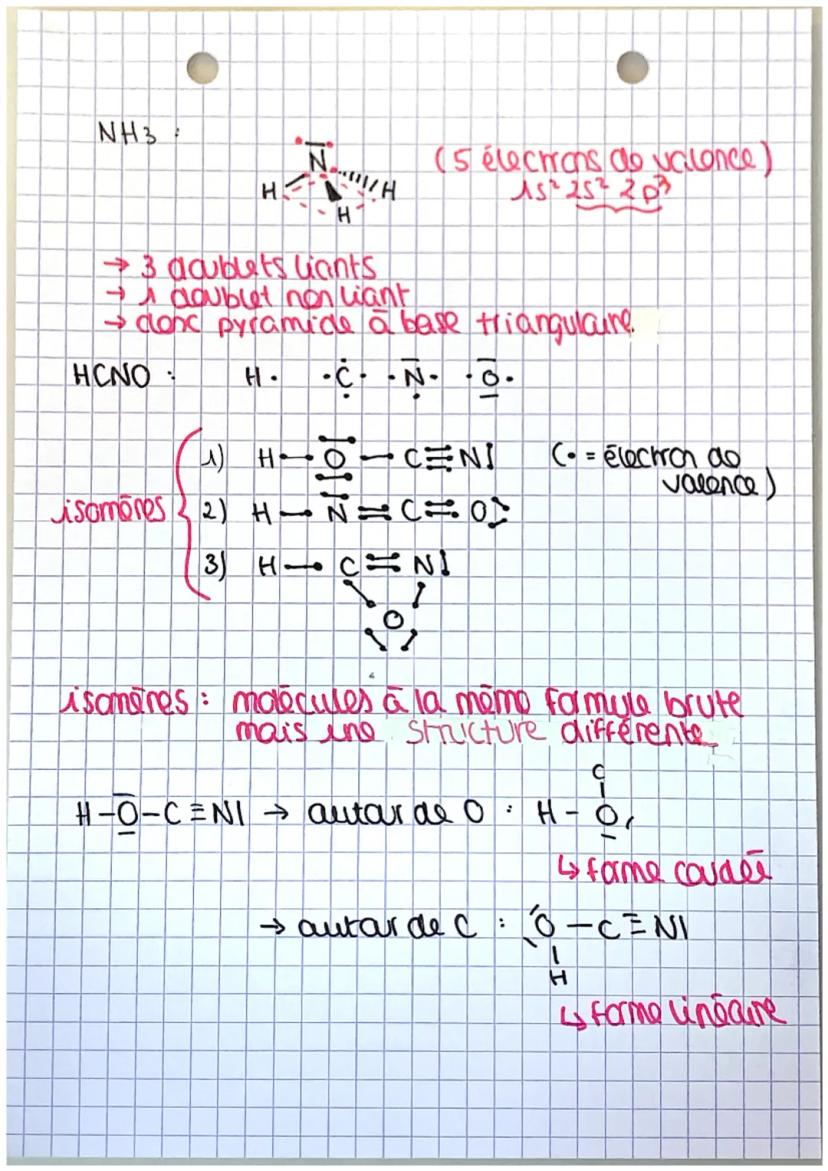 NH3 :
N
H H
H
(5 électrons de valence)
1s² 2s² 2p³
→ 3 doublets liants
→ 1 doublet non liant
→ donc pyramide à base triangulaire.
HCNO : H· ·C· ·N· ·O·
isomères
1) H—O—C≡N| (• = électron de valence)
2) H—N=C=O
3) H—C=N|
O
isomères : molécules à la même formule brute
mais une structure différente
H-O-C≡N| → autour de O : H-O
C
↳ forme coudée
→ autour de C : O-C≡N|
H
↳ forme linéaire